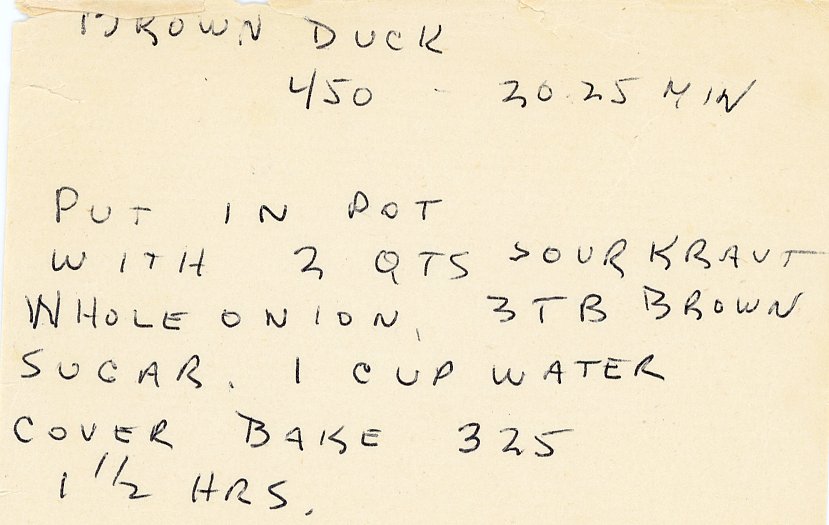 BROWN DUCK
450 - 20.25 MIN
PUT IN POT
WITH 2 QTS SOURKRAUT
WHOLE ONION, 3TB BROWN
SUGAR. 1 CUP WATER
COVER BAKE 325
1 1/2 HRS.